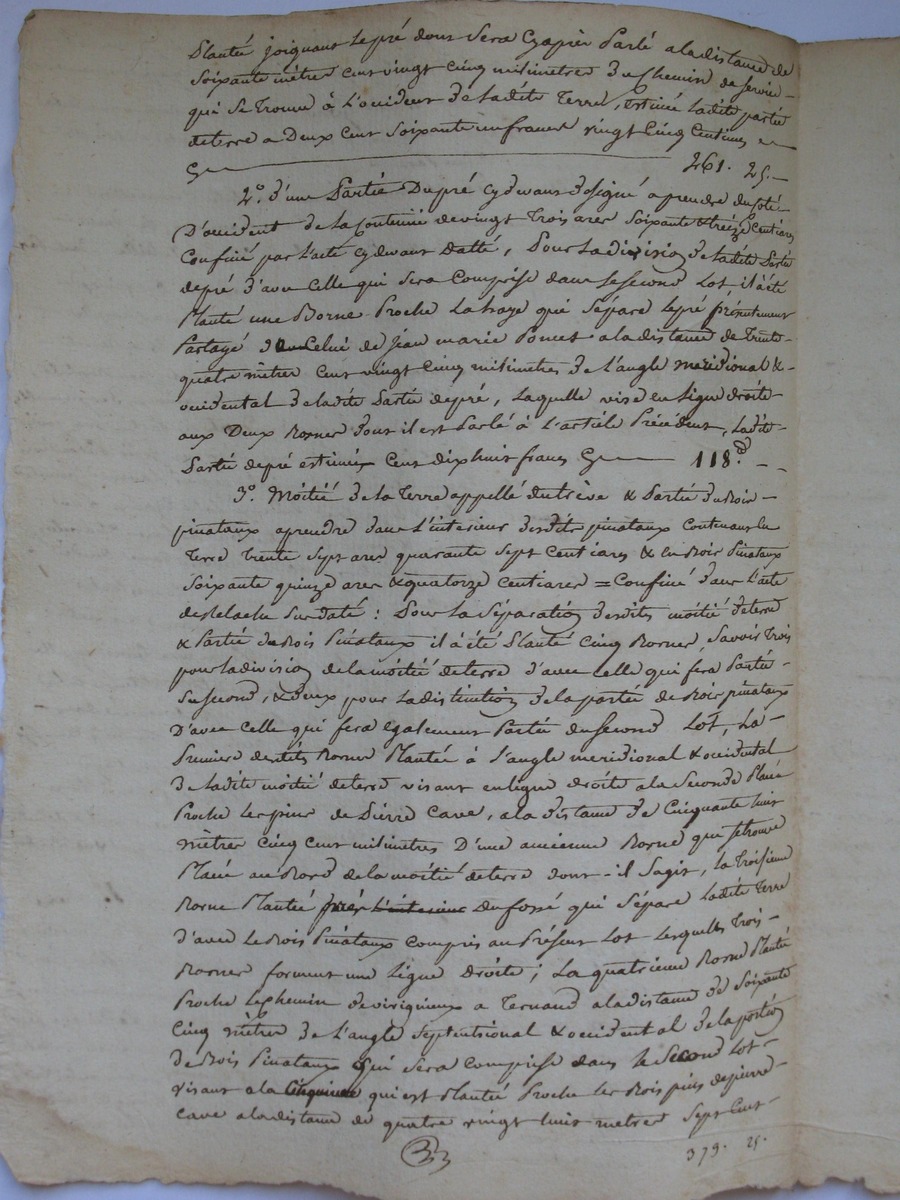 Planté joignant le pré dont sera cy après Parlé a la distance de
Soixante métres cent vingt cinq milimetres du Chemin de service
qui se trouve à L'occident de Ladite Terre, Estimée Ladite partie
de terre a Deux Cent Soixante un francs vingt Cinq Centimes
261. 25.
2.º d'une Partie Du pré cydevant désigné a prendre du coté
D'occident de la Contenue de vingt Trois ares Soixante & treize Centiares
Confiné par L'acte cydevant Datté, Pour la division de ladite Partie
de pré d'avec Celle qui sera Comprise dans le second Lot, il à été
Planté une Borne Proche La haye qui Sépare le pré présentement
Partagé d'avec Celui de Jean marie Poncet a la distance de Trente
quatre mètres Cent vingt Cinq milimetres de L'angle meridional &
occidental de ladite Partie de pré, Laquelle vise en Ligne droite
aux Deux Bornes dont il est Parlé à L'article Précédent, Ladite
Partie de pré estimée Cent dix huit francs 118.
3.º Moitié de la Terre appellé du trève & Partie du Bois
pinataux a prendre dans L'interieur desdits pinataux Contenant la
Terre Trente Sept ares quarante Sept Centiares & le Bois Pinataux
Soixante quinze ares & quatorze Centiares = Confiné dans L'acte
de Relache Sus daté : Pour la Séparation desdits moitié de terre
& Partie de Bois Pinataux il à été Planté Cinq Bornes, Savoir Trois
pour la division de la moitié de terre d'avec Celle qui fera Partie
Du second, & deux pour la distinction de la partie de Bois pinataux
D'avec Celle qui fera également Partie du second Lot, La
Premiere desdites Bornes Planté à L'angle meridional & occidental
de ladite moitié de terre visant en ligne droite a la Seconde Placée
Proche les pins de Pierre Cave, a la distance de Cinquante huit
mètres Cinq Cent milimetres D'une ancienne Borne que se trouve
Placée au Nord de la moitié de terre dont il S'agit, la Troisieme
Borne Plantée près L'interieur Du fossé qui Sépare Ladite Terre
d'avec Le Bois Pinataux Compris au Présent Lot Lesquelles Trois
Bornes forment une Ligne Droite ; La quatrieme Borne Planté
Proche Le Chemin de virigneux a Ternand a la distance de Soixante
Cinq mètres de L'angle Septentrional & occidental de la portion
de Bois Pinataux Qui sera Comprise dans le Second Lot
visant a la Cinquieme qui est Plantée Proche les Bois pins de pierre
Cave a la distance de quatre vingt huit metres Sept Cent
379. 25.